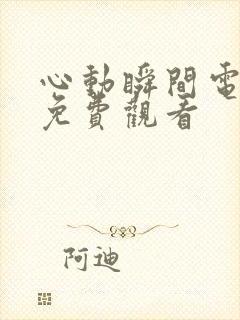 心動瞬間電
免費觀看
阿迪